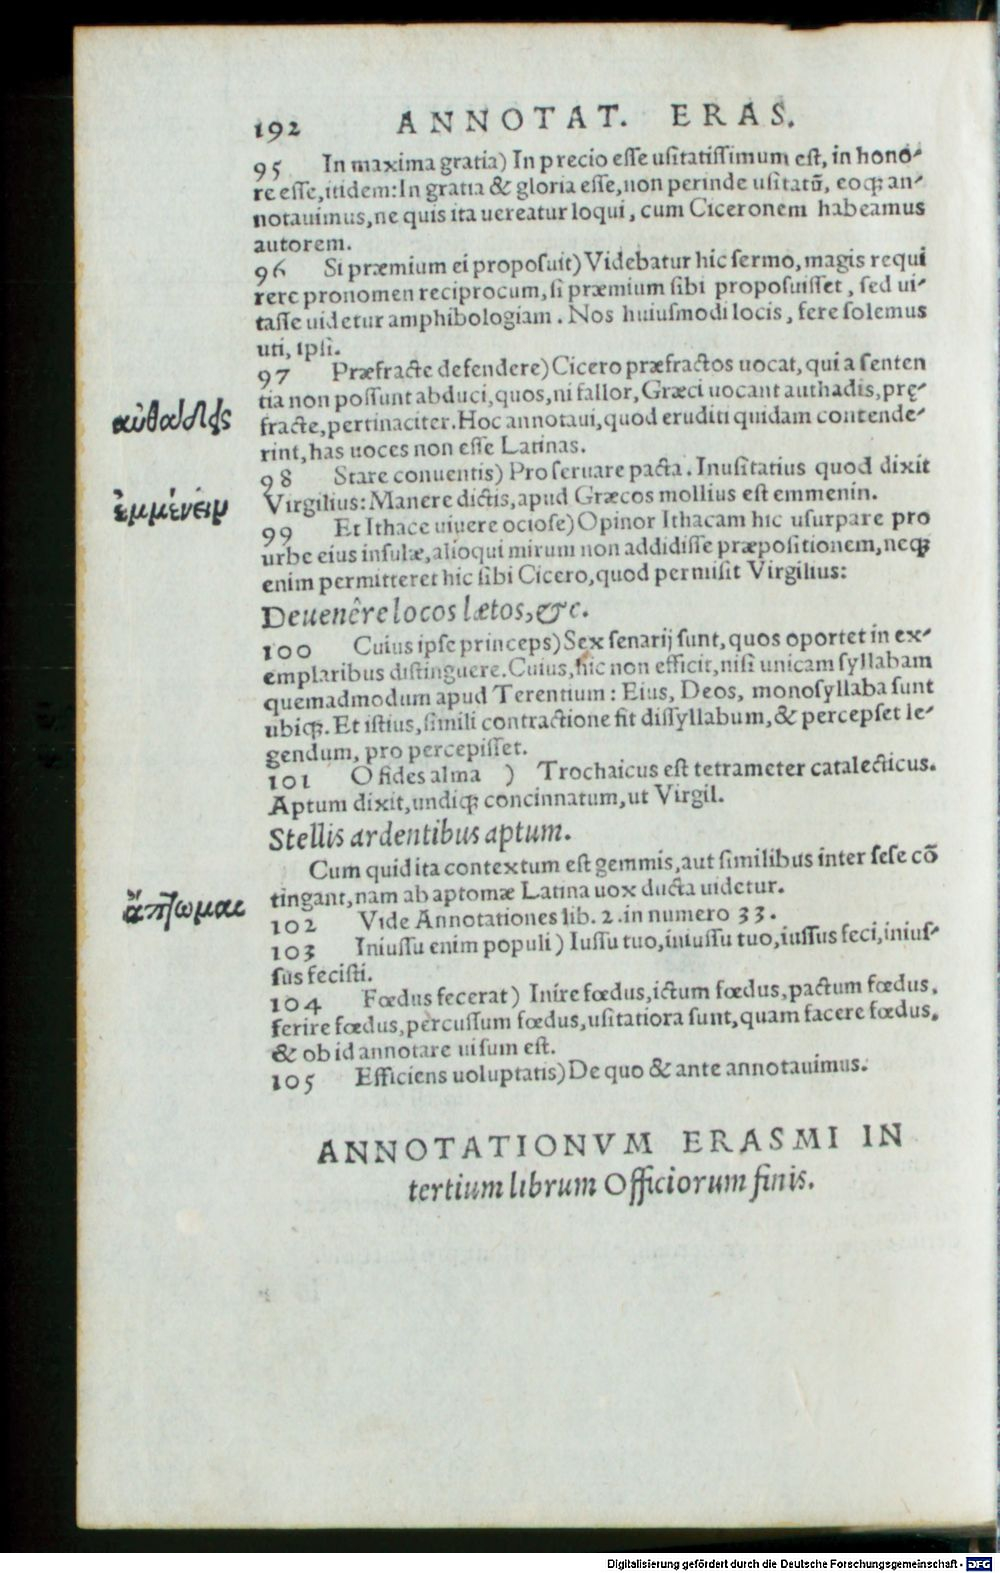 192 ANNOTAT. ERAS.
95 In maxima gratia) In precio esse usitatissimum est, in hono-
re esse, itidem: In gratia & gloria esse, non perinde usitatū, eoq; an-
notauimus, ne quis ita uereatur loqui, cum Ciceronem habeamus
autorem.
96 Si præmium ei proposuit) Videbatur hic sermo, magis requi
rere pronomen reciprocum, si præmium sibi proposuisset, sed ui-
tasse uidetur amphibologiam. Nos huiusmodi locis, fere solemus
uti, ipsi.
97 Præfracte defendere) Cicero præfractos uocat, qui a senten
tia non possunt abduci, quos, ni fallor, Græci uocant authadis, prę-
αὐθαδεῖς
fracte, pertinaciter. Hoc annotaui, quod eruditi quidam contende-
rint, has uoces non esse Latinas.
98 Stare conuentis) Pro seruare pacta. Inusitatius quod dixit
Virgilius: Manere dictis, apud Græcos mollius est emmenin.
ἐμμένειν
99 Et Ithace uiuere ociose) Opinor Ithacam hic usurpare pro
urbe eius insulæ, alioqui mirum non addidisse præpositionem, neq;
enim permitteret hic sibi Cicero, quod permisit Virgilius:
Deuenêre locos lætos, &c.
100 Cuius ipse princeps) Sex senarij sunt, quos oportet in ex-
emplaribus distinguere. Cuius, hic non efficit, nisi unicam syllabam
quemadmodum apud Terentium: Eius, Deos, monosyllaba sunt
ubiq;. Et istius, simili contractione fit dissyllabum, & percepset le-
gendum, pro percepisset.
101 O fides alma ) Trochaicus est tetrameter catalecticus.
Aptum dixit, undiq; concinnatum, ut Virgil.
Stellis ardentibus aptum.
Cum quid ita contextum est gemmis, aut similibus inter sese cō
tingant, nam ab aptomæ Latina uox ducta uidetur.
ἅπτομαι
102 Vide Annotationes lib. 2. in numero 33.
103 Iniussu enim populi) Iussu tuo, iniussu tuo, iussus feci, inius-
sus fecisti.
104 Fœdus fecerat) Inire fœdus, ictum fœdus, pactum fœdus,
ferire fœdus, percussum fœdus, usitatiora sunt, quam facere fœdus,
& ob id annotare uisum est.
105 Efficiens uoluptatis) De quo & ante annotauimus.
ANNOTATIONVM ERASMI IN
tertium librum Officiorum finis.
Digitalisierung gefördert durch die Deutsche Forschungsgemeinschaft - DFG